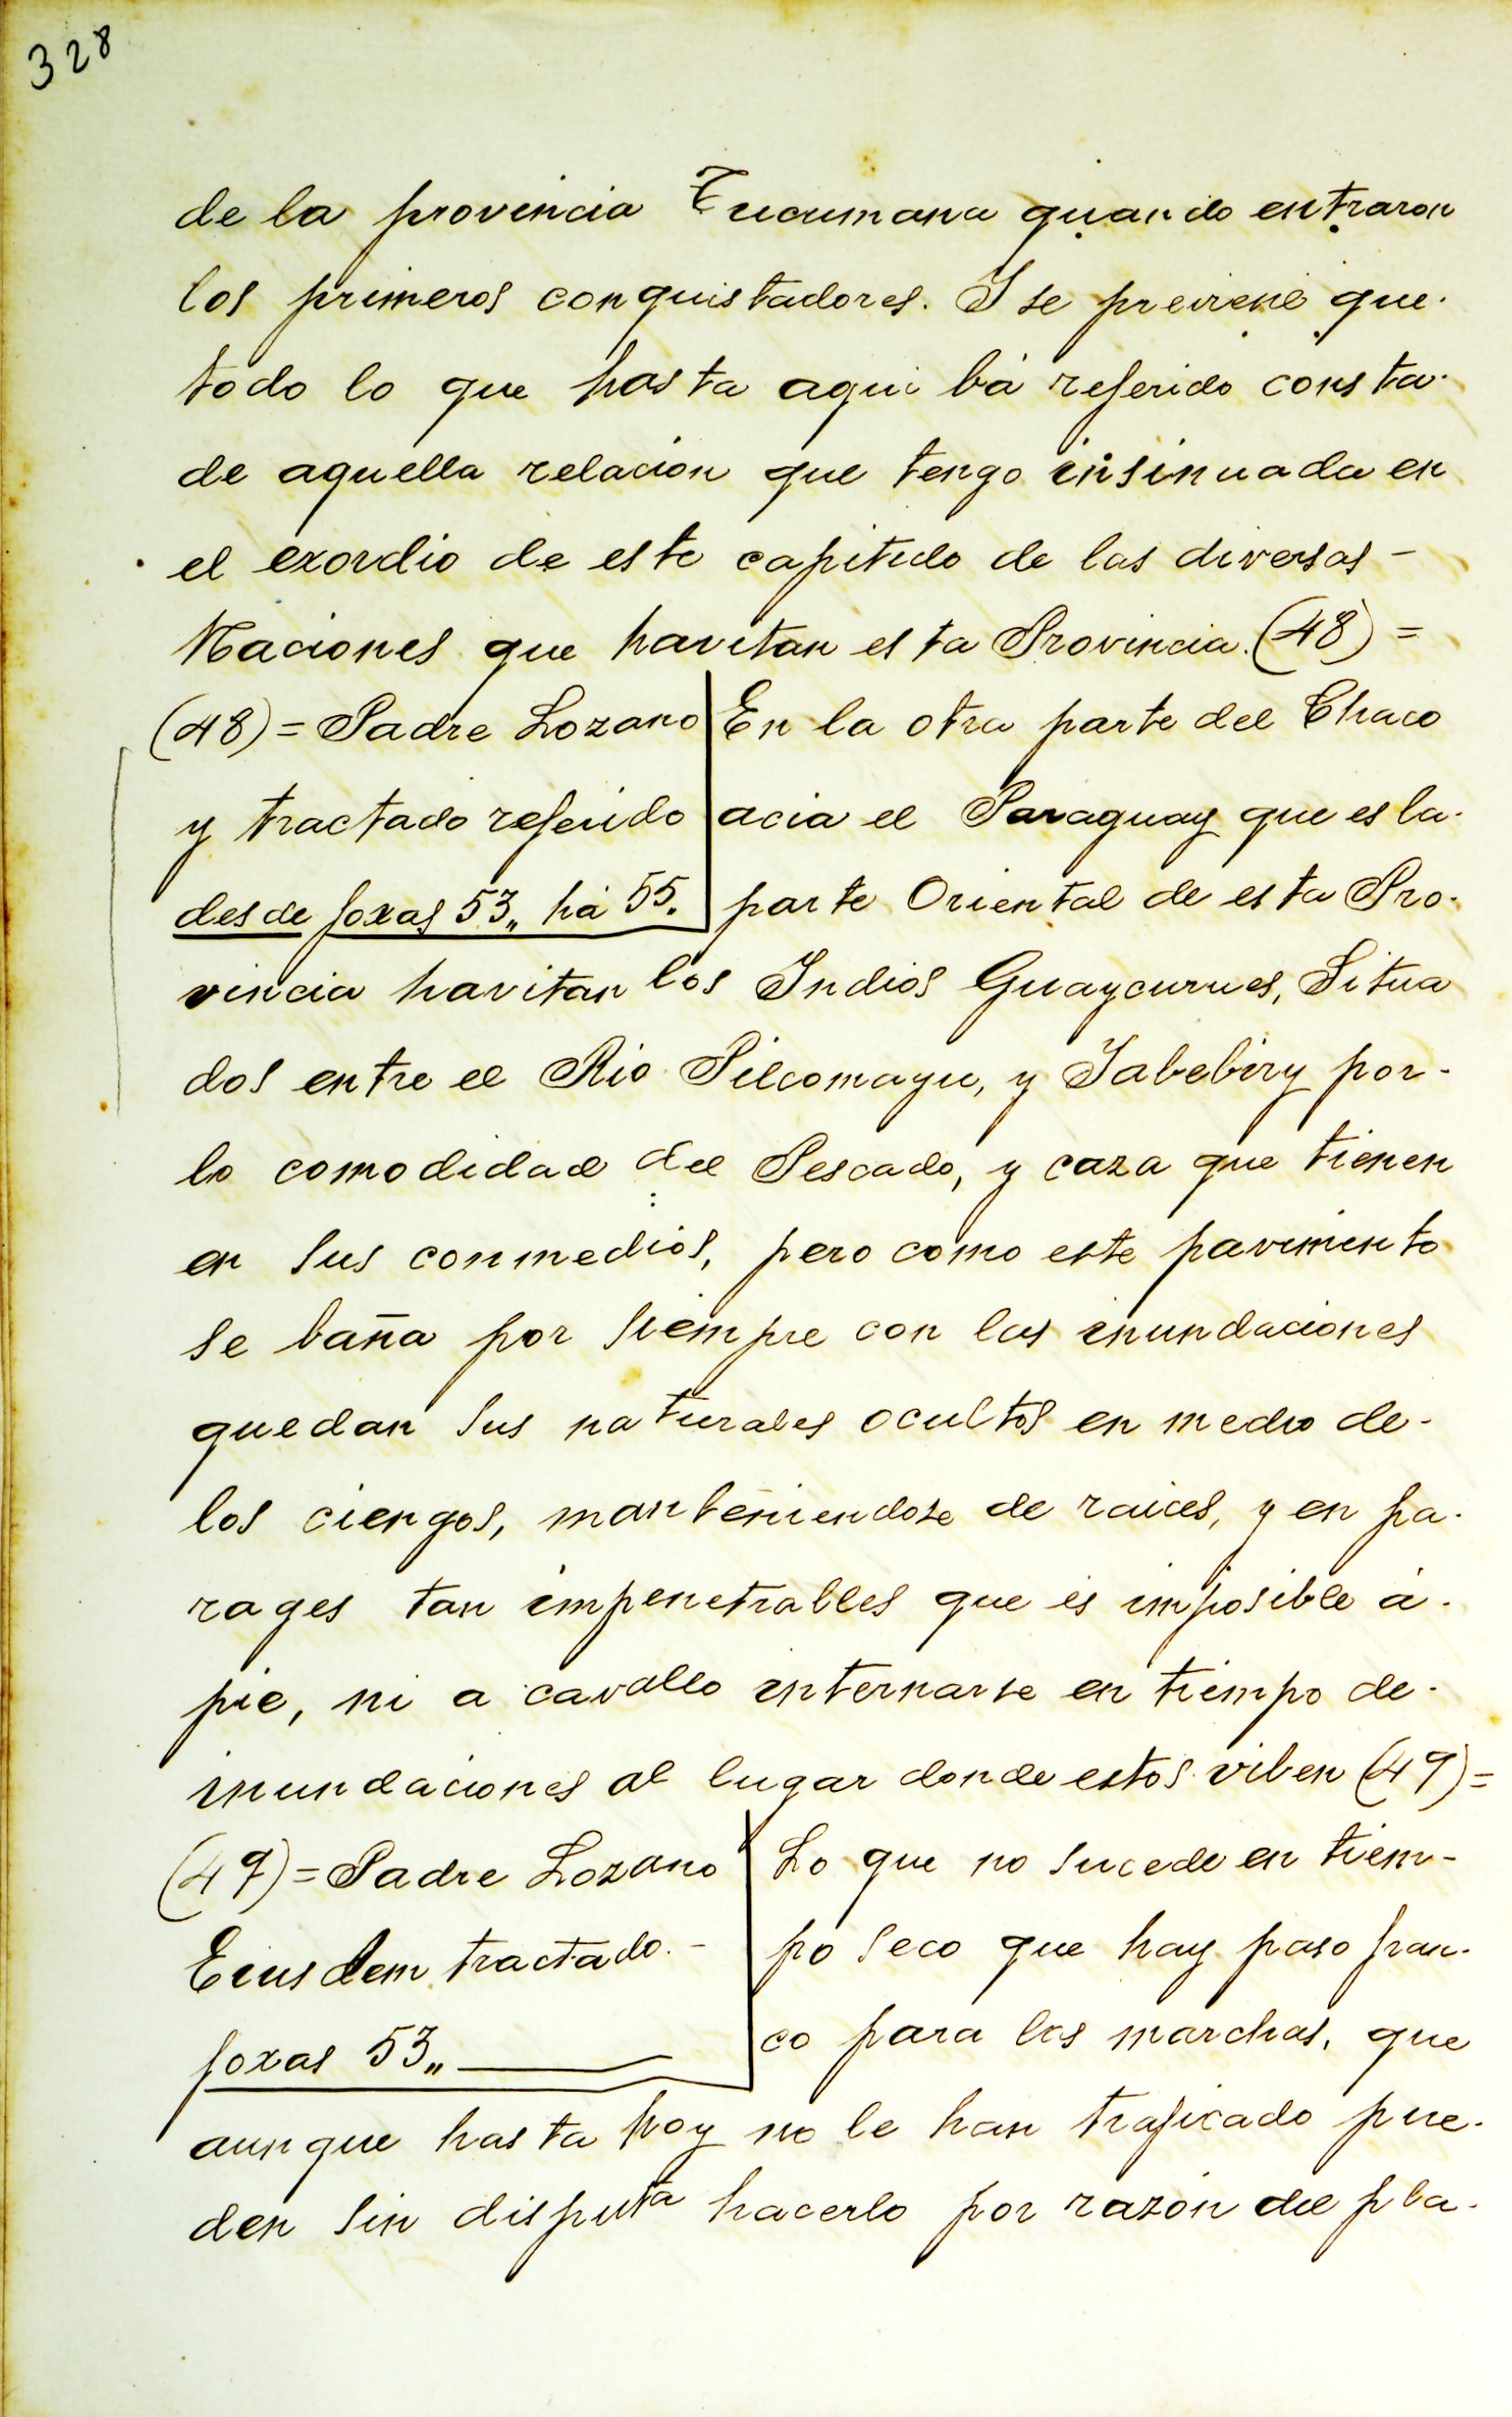 328
de la provincia Tucumana quando entraron
los primeros conquistadores. I se previene que.
todo lo que hasta aqui bá referido consta.
de aquella relacion que tengo insinuada en
el exordio de este capitulo de las diversas -
Naciones que havitan esta Provincia. (48) =
(48) = Padre Lozano
y tractado referido
desde foxas 53,, há 55.
En la otra parte del Chaco
acia el Paraguay que es la.
parte Oriental de esta Pro.
vincia havitan los Indios Guaycurues, Situa
dos entre el Rio Pilcomayu, y Iabebiry por -
lo comodidad del Pescado, y caza que tienen
en sus conmedios, pero como este pavimento
se baña por siempre con las inundaciones
quedan sus naturales ocultos en medio de -
los ciengos, manteniendose de raices, y en pa.
rages tan impenetrables que és imposible á.
pie, ni a cavallo internarse en tiempo de.
inundaciones al lugar donde estos viben (49) =
(49) = Padre Lozano
Eiusdem tractado. -
foxas 53,,
Lo que no sucede en tiem-
po seco que hay paso fran.
co para las marchas, que
aunque hasta hoy no le han traficado pue.
den sin disputa hacerlo por razón del pla.